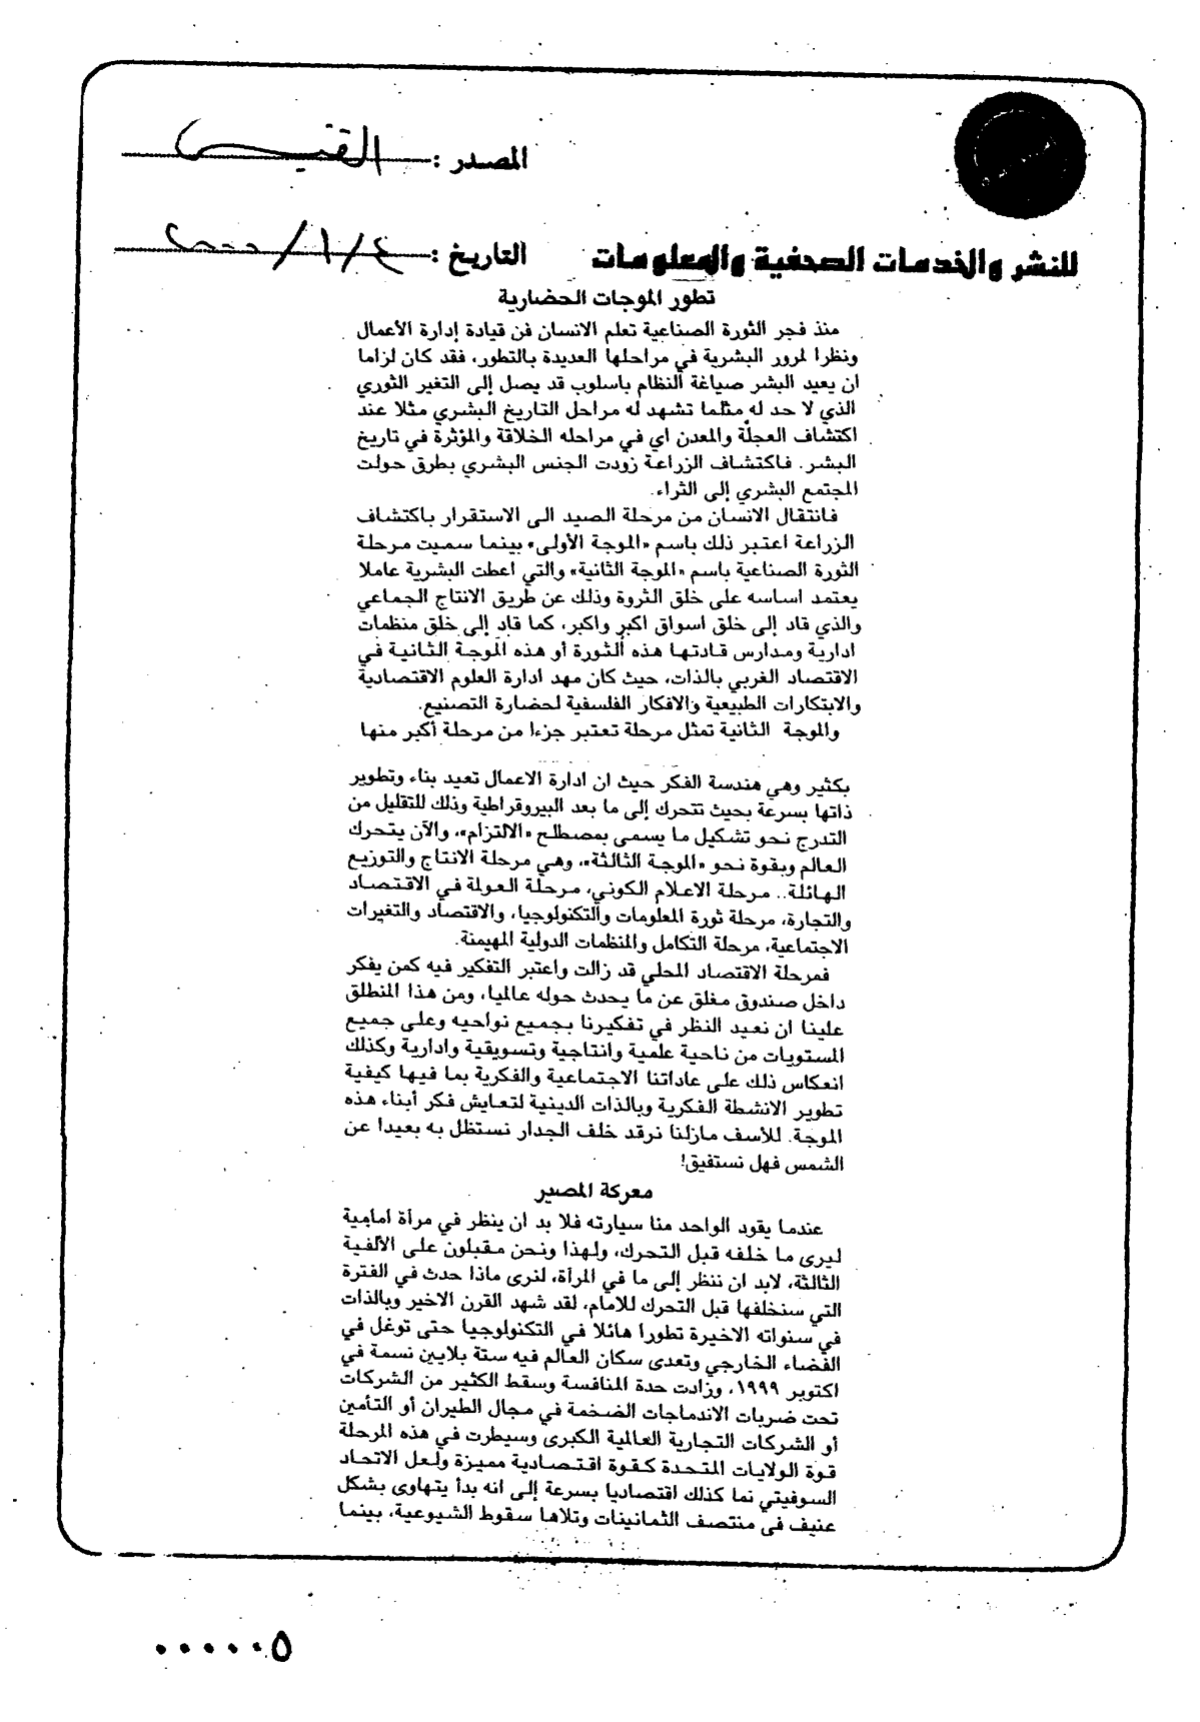 المصدر : القبس
التاريخ : ٤/١/٢٠٠٠
للنشر والخدمات الصحفية والمعلومات
تطور الموجات الحضارية
منذ فجر الثورة الصناعية تعلم الانسان فن قيادة إدارة الأعمال
ونظرا لمرور البشرية في مراحلها العديدة بالتطور، فقد كان لزاما
ان يعيد البشر صياغة النظام باسلوب قد يصل إلى التغير الثوري
الذي لا حد له مثلما تشهد له مراحل التاريخ البشري مثلا عند
اكتشاف العجلة والمعدن اي في مراحله الخلاقة والمؤثرة في تاريخ
البشر. فاكتشاف الزراعة زودت الجنس البشري بطرق حولت
المجتمع البشري إلى الثراء.
فانتقال الانسان من مرحلة الصيد الى الاستقرار باكتشاف
الزراعة اعتبر ذلك باسم «الموجة الأولى» بينما سميت مرحلة
الثورة الصناعية باسم «الموجة الثانية» والتي اعطت البشرية عاملا
يعتمد اساسه على خلق الثروة وذلك عن طريق الانتاج الجماعي
والذي قاد إلى خلق اسواق اكبر واكبر، كما قاد إلى خلق منظمات
ادارية ومدارس قادتها هذه الثورة أو هذه الموجة الثانية في
الاقتصاد الغربي بالذات، حيث كان مهد ادارة العلوم الاقتصادية
والابتكارات الطبيعية والافكار الفلسفية لحضارة التصنيع.
والموجة الثانية تمثل مرحلة تعتبر جزءا من مرحلة أكبر منها
بكثير وهي هندسة الفكر حيث ان ادارة الاعمال تعيد بناء وتطوير
ذاتها بسرعة بحيث تتحرك إلى ما بعد البيروقراطية وذلك للتقليل من
التدرج نحو تشكيل ما يسمى بمصطلح «الالتزام»، والآن يتحرك
العالم وبقوة نحو «الموجة الثالثة»، وهي مرحلة الانتاج والتوزيع
الهائلة.. مرحلة الاعلام الكوني، مرحلة العولة في الاقتصاد
والتجارة، مرحلة ثورة المعلومات والتكنولوجيا، والاقتصاد والتغيرات
الاجتماعية، مرحلة التكامل والمنظمات الدولية المهيمنة.
فمرحلة الاقتصاد المحلي قد زالت واعتبر التفكير فيه كمن يفكر
داخل صندوق مغلق عن ما يحدث حوله عالميا، ومن هذا المنطلق
علينا ان نعيد النظر في تفكيرنا بجميع نواحيه وعلى جميع
المستويات من ناحية علمية وانتاجية وتسويقية وادارية وكذلك
انعكاس ذلك على عاداتنا الاجتماعية والفكرية بما فيها كيفية
تطوير الانشطة الفكرية وبالذات الدينية لتعايش فكر أبناء هذه
الموجة. للأسف مازلنا نرقد خلف الجدار نستظل به بعيدا عن
الشمس فهل نستفيق!
معركة المصير
عندما يقود الواحد منا سيارته فلا بد ان ينظر في مرآة امامية
ليرى ما خلفه قبل التحرك، ولهذا ونحن مقبلون على الألفية
الثالثة، لابد ان ننظر إلى ما في المرآة، لنرى ماذا حدث في الفترة
التي سنخلفها قبل التحرك للامام، لقد شهد القرن الاخير وبالذات
في سنواته الاخيرة تطورا هائلا في التكنولوجيا حتى توغل في
الفضاء الخارجي وتعدى سكان العالم فيه ستة بلايين نسمة في
اكتوبر ١٩٩٩، وزادت حدة المنافسة وسقط الكثير من الشركات
تحت ضربات الاندماجات الضخمة في مجال الطيران أو التأمين
أو الشركات التجارية العالمية الكبرى وسيطرت في هذه المرحلة
قوة الولايات المتحدة كقوة اقتصادية مميزة ولعل الاتحاد
السوفيتي نما كذلك اقتصاديا بسرعة إلى انه بدأ يتهاوى بشكل
عنيف في منتصف الثمانينات وتلاها سقوط الشيوعية، بينما
٠٠٠٠٠٥